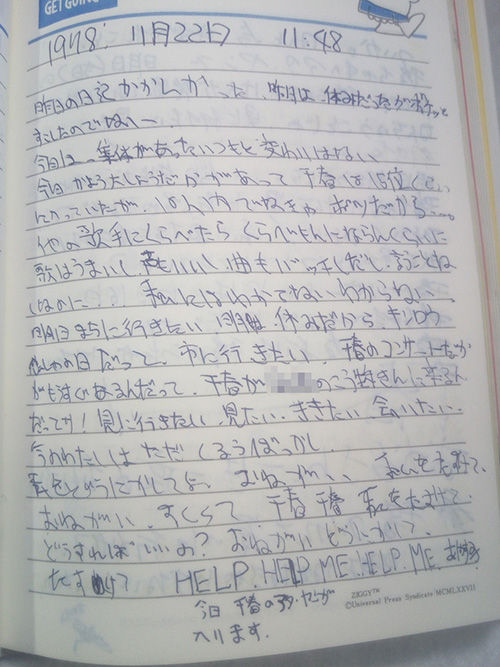 GET GOING
1978. 11月22日 11:48
昨日の日記かかんかった。昨日は休みだったがボケッと
すごしたのでない
今日は、集体があったいつもと変わりはない
今日 かよう大 があって 千春は15位くらい
に入っていたが、10人内でなきゃ ボツだから
他の歌手にくらべたら くらべもんにならんくらいに
歌はうまいし 声もいいし 曲もバッチしだし、言うことね
しなのに 私にはわかでない わからない
明日まちに行きたい 明日は、休みだから、キンロウ
の日だって、市に行きたい。千春のコンサートなが
がもすぐあるんだって、千春が のこう さきんに来るん
だってサ!見に行きたい、見たい、ききたい 会いたい、
今のわたしは ただ くるうばっかし
私をどうにかしてよ、おねがい、私をたすけて、
おねがい、すくって 千春 千春 私をたすけて、
どうすればいいの? おねがい どうにかして、
たすけて HELP. HELP ME. HELP. ME.
今日 千春の
入ります。
ZIGGY™
©Universal Press Syndicate MCMLXXVII